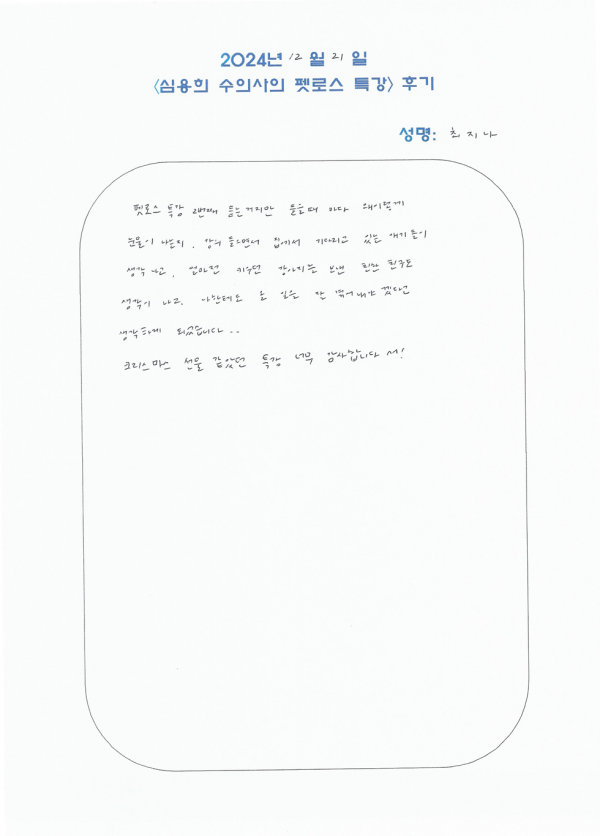 2024년 12월 21일
<심용희 수의사의 펫로스 특강> 후기
성명: 최지나
펫로스 특강 2번째 듣는거지만 들을때 마다 왜이렇게
눈물이 나는지, 강의 들으면서 집에서 기다리고 있는 애기들이
생각나고, 얼마전 키우던 강아지를 보낸 친한 친구도
생각이 나고, 나한테도 올 일을 잘 겪어내야 겠다고
생각하게 되었습니다..
크리스마스 선물 같았던 특강 너무 감사합니다